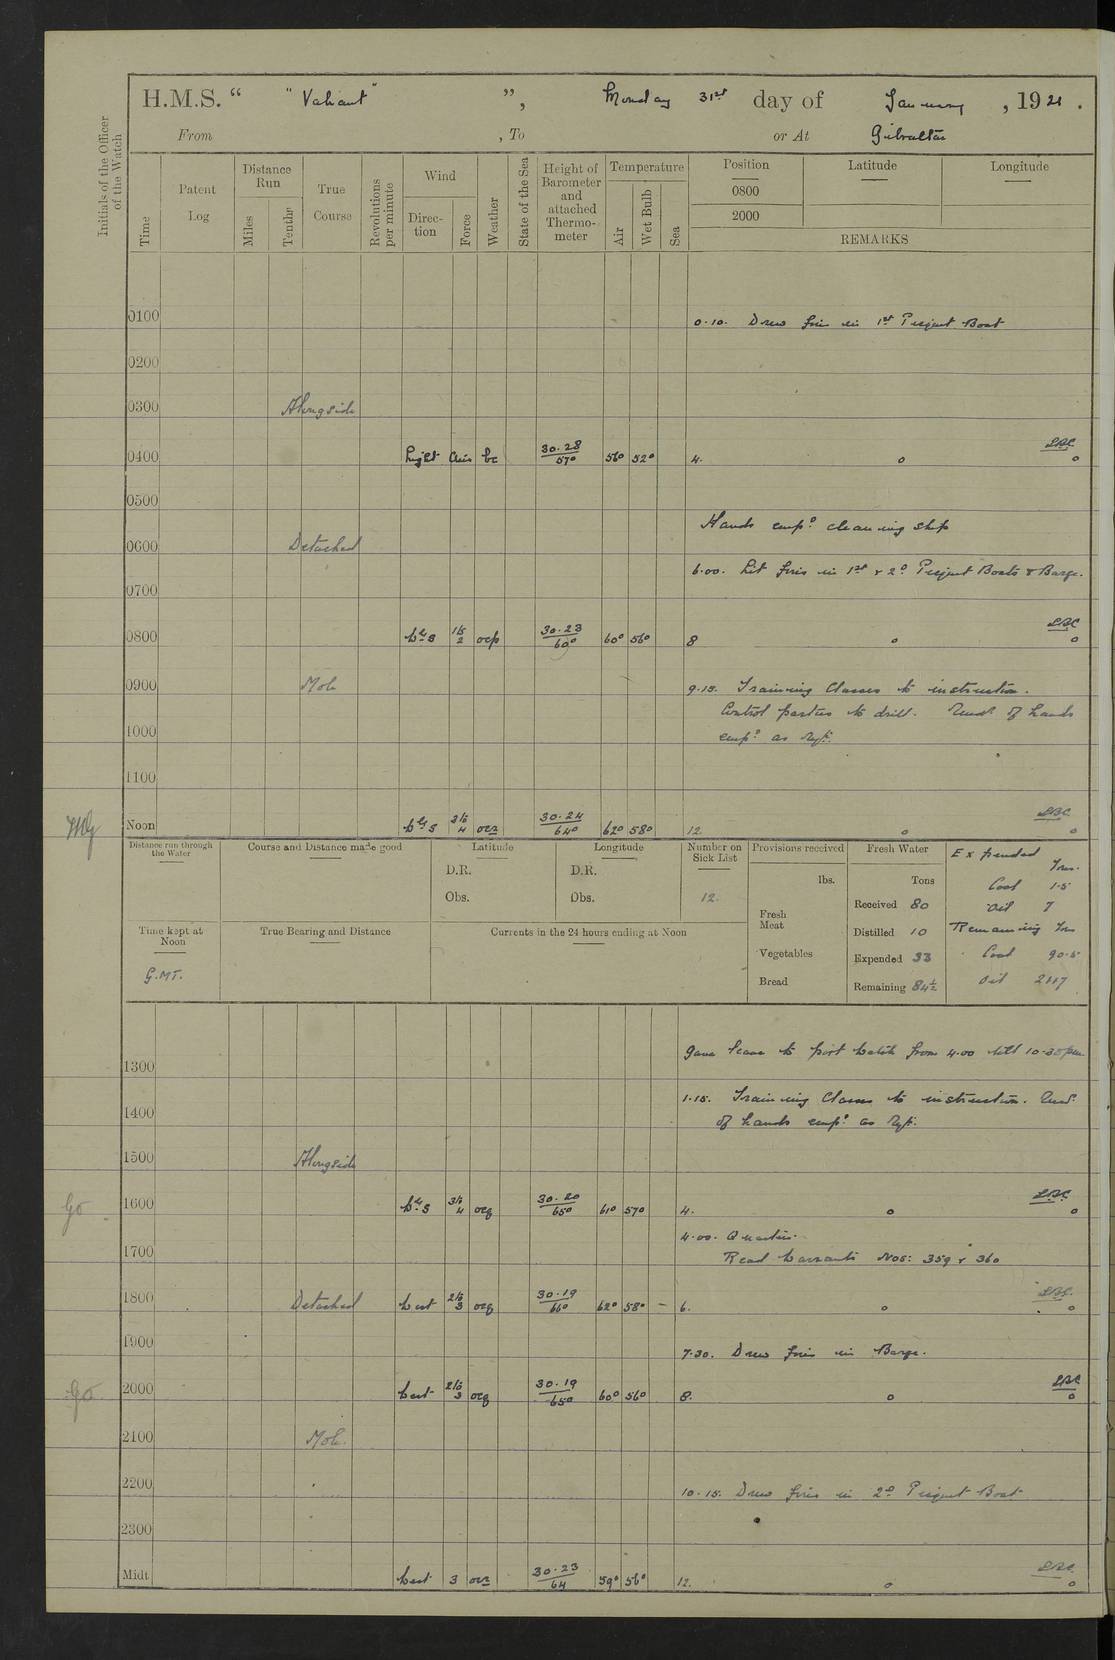 H.M.S. “ " Valiant " ”, Monday 31st day of January , 1921 .
From , To or At Gibraltar
Initials of the Officer of the Watch
Time
Patent Log
Distance Run
Miles
Tenths
True Course
Revolutions per minute
Wind
Direction
Force
Weather
State of the Sea
Height of Barometer and attached Thermometer
Temperature
Air
Wet Bulb
Sea
Position Latitude Longitude
0800
2000
REMARKS
0100 0.10. Drew fires in 1st Picquet Boat
0200
0300 Alongside
0400 Light airs bc 30.28/57° 56° 52° 4.
0500 Hands empd. cleaning ship
0600 Detached 6.00. Lit fires in 1st & 2d Picquet Boats & Barge.
0700
0800 W by S 1 to 2 ocp 30.23/60° 60° 56° 8
0900 Mole 9.15. Training Classes to instruction.
Control parties to drill. of hands
1000 empd. as
1100
Noon W by S 3 to 4 30.24/64° 62° 58° 12
Distance run through the Water
Course and Distance made good
Latitude
D.R.
Obs.
Longitude
D.R.
Obs.
Number on Sick List
12.
Provisions received
lbs.
Fresh Meat
Vegetables
Bread
Fresh Water
Tons
Received 80
Distilled 10
Expended 33
Remaining 84½
Expended Tons
Coal 1.5
Oil 7
Remaining Tons
Coal 90.5
Oil 2117
Time kept at Noon
G.M.T.
True Bearing and Distance
Currents in the 24 hours ending at Noon
Gave leave to port watch from 4.00 till 10.30 pm
1300
1.15. Training Classes to instruction.
1400 of hands empd. as
1500 Alongside
1600 W by S 3 to 4 ocq 30.20/65° 61° 57° 4.
4.00. Quarters.
1700 Read Warrants Nos: 359 & 360
1800 Detached West 2 to 3 ocq 30.19/66° 62° 58° – 6.
1900 7.30. Drew fires in Barge.
2000 West 2 to 3 ocq 30.19/65° 60° 56° 8.
2100 Mole.
2200 10.15. Drew fires in 2d Picquet Boat
2300
Midt West 3 30.23/64 59° 56° 12.